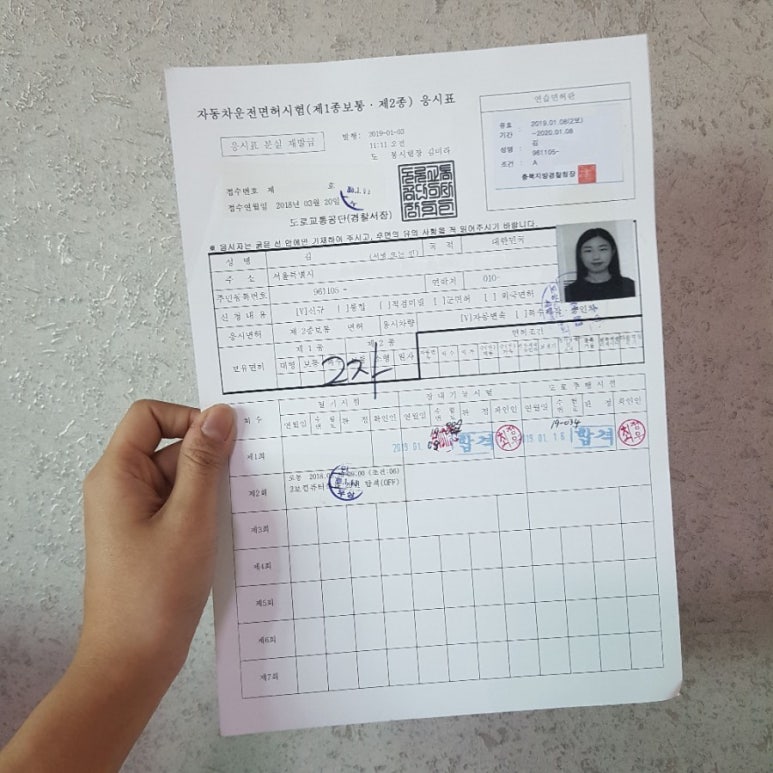 자동차운전면허시험(제1종보통 · 제2종) 응시표
응시표 분실 재발급
발행: 2019-01-03
11:11 오전
접수번호 제 호
접수연월일 2018년 03월 20일
도로교통공단(경찰서장)
연습면허란
번호 : 2019.01.08(2보)
기간 : ~2020.01.08
성명 : 김
: 961105-
조건 : A
충북지방경찰청장
※ 응시자는 굵은 선 안에만 기재하여 주시고, 주의 사항을 꼭 읽어주시기 바랍니다.
성 명 김 (서명 또는 인) 국 적 대한민국
주 소 서울특별시
주민등록번호 961105- 연락처 010-
신 청 내 용 [V]신규 [ ] [ ] [ ]군면허 [ ]외국면허
응시면허 제2종보통 면허 응시차량 [V]자동변속 [ ]
보유면허 제 1 종 제 2 종 면허조건
대형 보통 소형
2자
회 수 필 기 시 험 장 내 기 능 시 험 도 로 주 행 시 험
연월일 판 정 확인인 연월일 판 정 확인인 연월일 판 정 확인인
제1회 2019 01. 합격 19-034 2019 01. 16 합격
제2회 2018. 00 (조건:06)
합격(OFF)
제3회
제4회
제5회
제6회
제7회